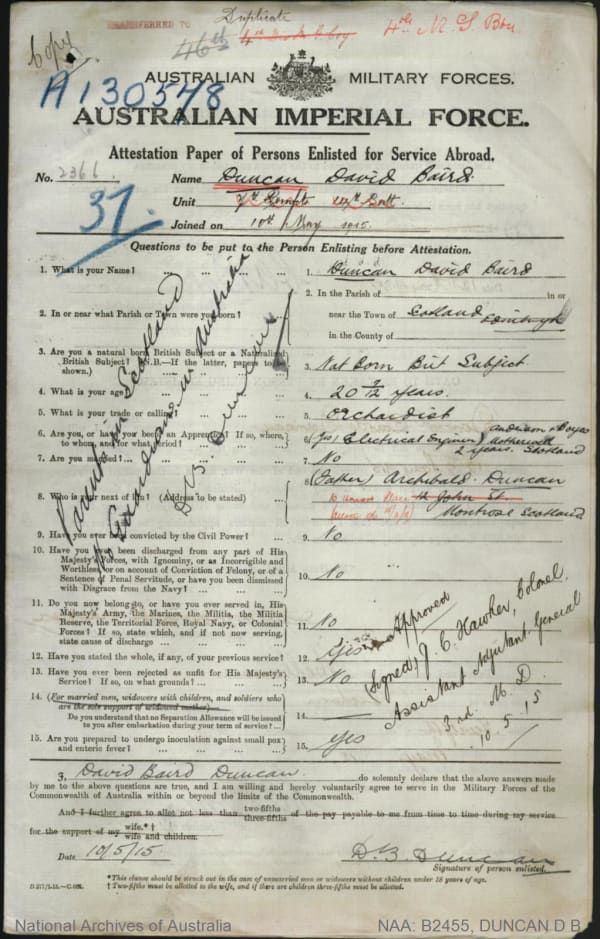 TRANSFERRED TO
Duplicate
Copy
46th
4th M. G. Bn
AUSTRALIAN MILITARY FORCES.
A130548
AUSTRALIAN IMPERIAL FORCE.
Attestation Paper of Persons Enlisted for Service Abroad.
No. 2366. Name Duncan David Baird
37.
Unit 14th Batt.
Joined on 10th May 1915
Questions to be put to the Person Enlisting before Attestation.
1. What is your Name? ... ... ... 1. Duncan David Baird
2. In or near what Parish or Town were you born? ... 2. In the Parish of in or
near the Town of Scotland Edinburgh
in the County of
3. Are you a natural born British Subject or a Naturalized
British Subject? (N.B.—If the latter, papers to be
shown.) 3. Nat Born Brit Subject
4. What is your age? 4. 20 7/12 years.
5. What is your trade or calling? 5. Orchardist
6. Are you, or have you been an Apprentice? If so, where,
to whom, and for what period? 6. (Yes) (Electrical Engineer) Anderson & Boyes
Motherwell
2 years. Scotland
7. Are you married? ... 7. No
8. Who is your next of kin? (Address to be stated) 8. (Father) Archibald Duncan
12 John St.
Montrose Scotland
9. Have you ever been convicted by the Civil Power? 9. No
10. Have you ever been discharged from any part of His
Majesty's Forces, with Ignominy, or as Incorrigible and
Worthless, or on account of Conviction of Felony, or of a
Sentence of Penal Servitude, or have you been dismissed
with Disgrace from the Navy? ... 10. No
11. Do you now belong to, or have you ever served in, His
Majesty's Army, the Marines, the Militia, the Militia
Reserve, the Territorial Force, Royal Navy, or Colonial
Forces? If so, state which, and if not now serving,
state cause of discharge 11. No
12. Have you stated the whole, if any, of your previous service? 12. Yes
13. Have you ever been rejected as unfit for His Majesty's
Service? If so, on what grounds? 13. No
14. (For married men, widowers with children, and soldiers who
are the sole support of widowed mother)—
Do you understand that no Separation Allowance will be issued
to you after embarkation during your term of service? ... 14. —
15. Are you prepared to undergo inoculation against small pox
and enteric fever? 15. Yes
Parents in Scotland
No Guardians in Australia
D. B. Duncan
Approved
(Signed) J. C. Hawker, Colonel.
Assistant Adjutant General
3rd M. D.
10.5.15
I, David Baird Duncan do solemnly declare that the above answers made
by me to the above questions are true, and I am willing and hereby voluntarily agree to serve in the Military Forces of the
Commonwealth of Australia within or beyond the limits of the Commonwealth.
And I further agree to allot not less than two-fifths
three-fifths of the pay payable to me from time to time during my service
for the support of my wife.*†
wife and children.
Date 10/5/15 D. B. Duncan
Signature of person enlisted.
*This clause should be struck out in the case of unmarried men or widowers without children under 18 years of age.
†Two-fifths must be allotted to the wife, and if there are children three-fifths must be allotted.
National Archives of Australia NAA: B2455, DUNCAN D B